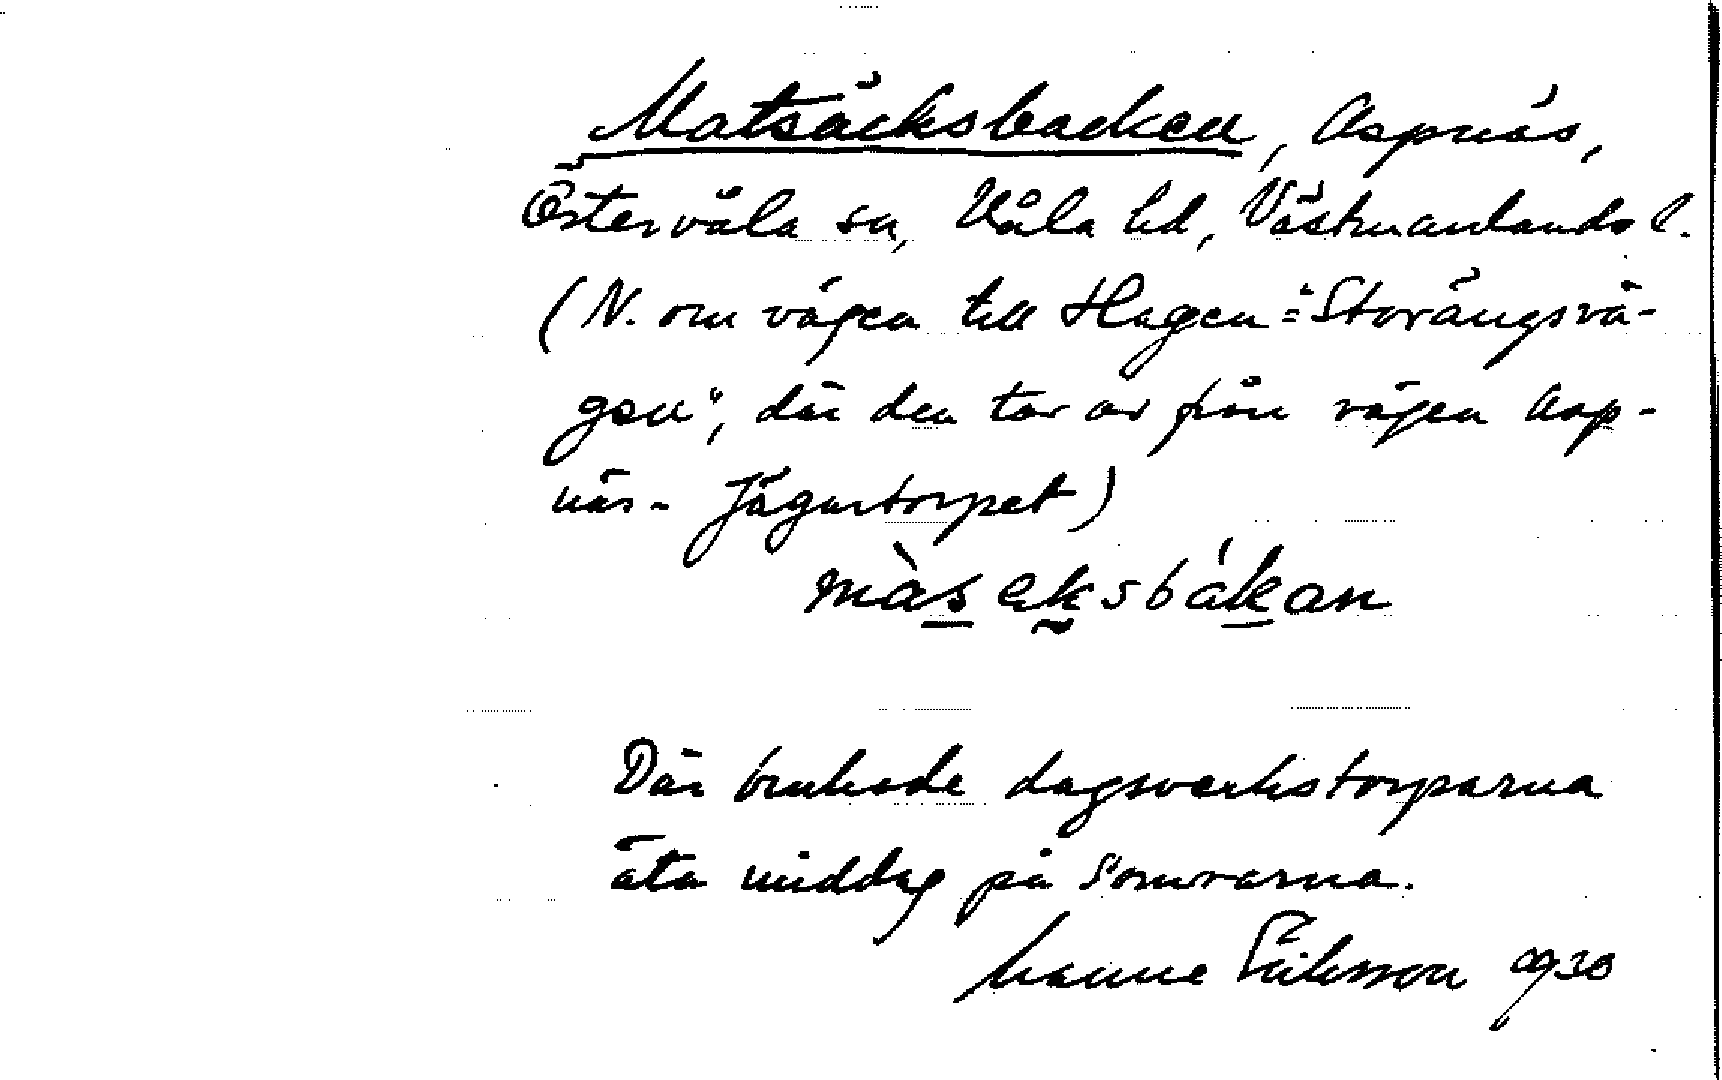 Matsäcksbacken, Aspnäs,
Östervåla sn, Våla hd, Västmanlands l.
(N. om vägen till Hagen = "Storängsvä-
gen", där den tar av från vägen Asp-
näs - Jägartorpet)
màsäksbákan
Där brukade dagsverkstorparna
äta middag på somrarna.
Eriksson 1930